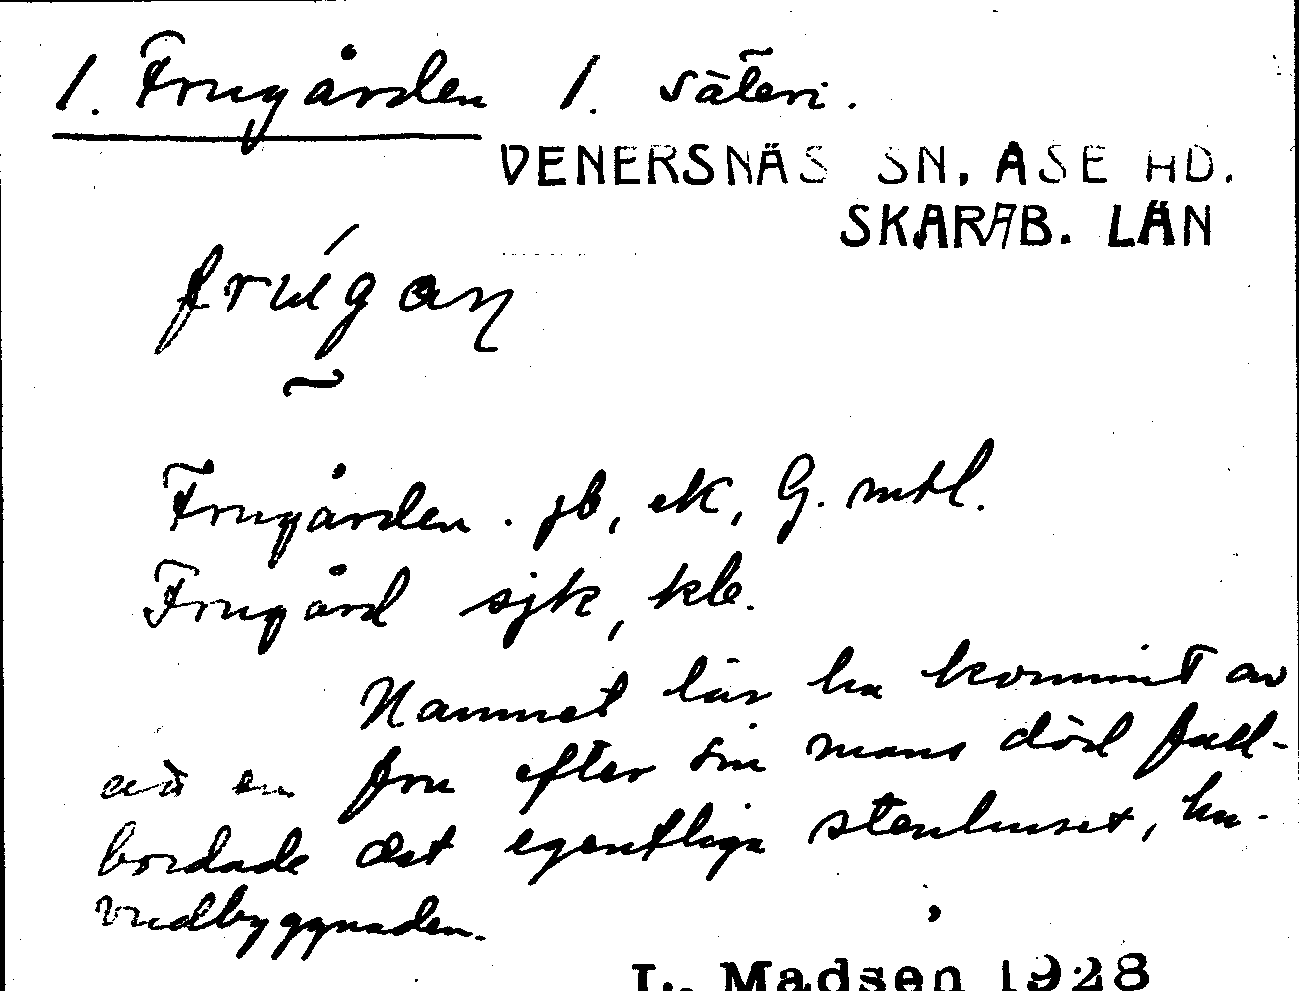 1. Frugården 1. säteri.
VENERSNÄS SN. ÅSE HD.
SKARAB. LÄN
frúgaɳ
Frugården. jb, ek, G. mtl.
Frugård sjk, kb.
Namnet lär ha kommit av
att en fru efter sin mans död full-
bordade det egentliga stenhuset, hu-
vudbyggnaden.
L. Madsen 1928